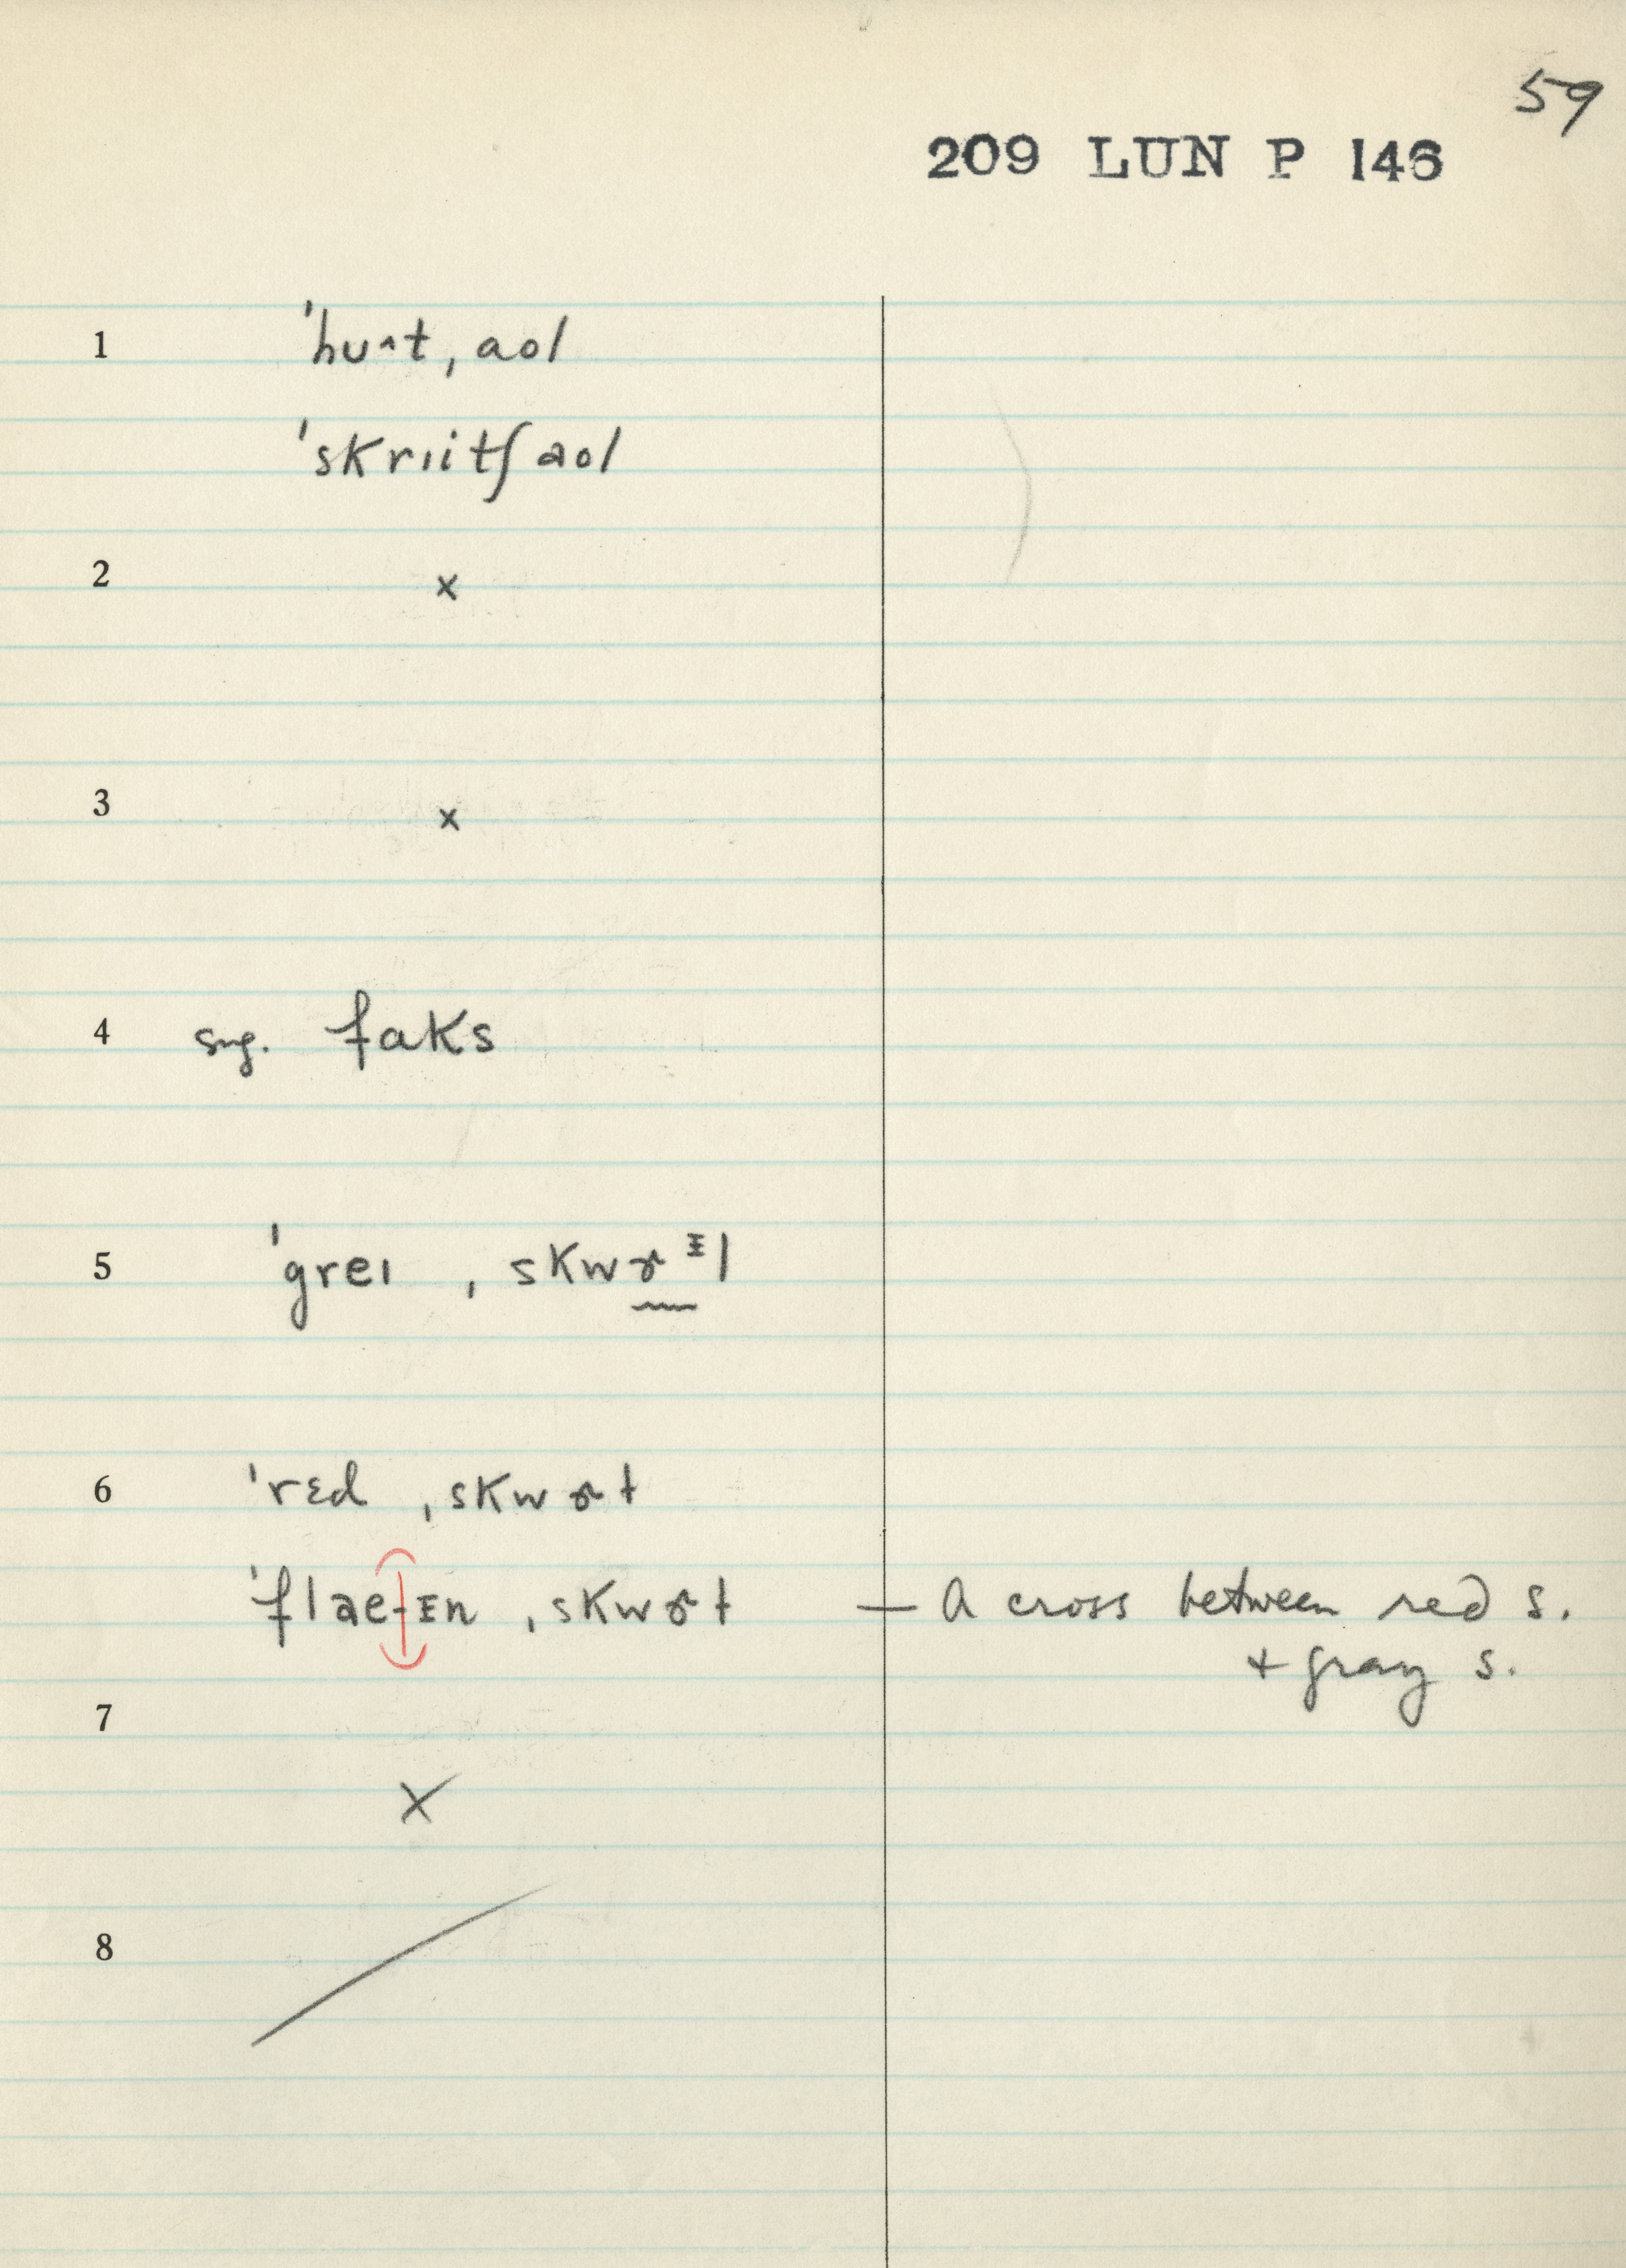 59
209 LUN P 146
1 ˈhuᴧt ˌaol
ˈskrɪitʃ aol
2 x
3 x
4 sug. faks
5 ˈgreɪ ˌskwɚᵻl
6 ˈrɛd ˌskwɚɫ
ˈflaetᵻn ˌskwɚɫ — A cross between red s.
+ gray s.
7 X
8 /